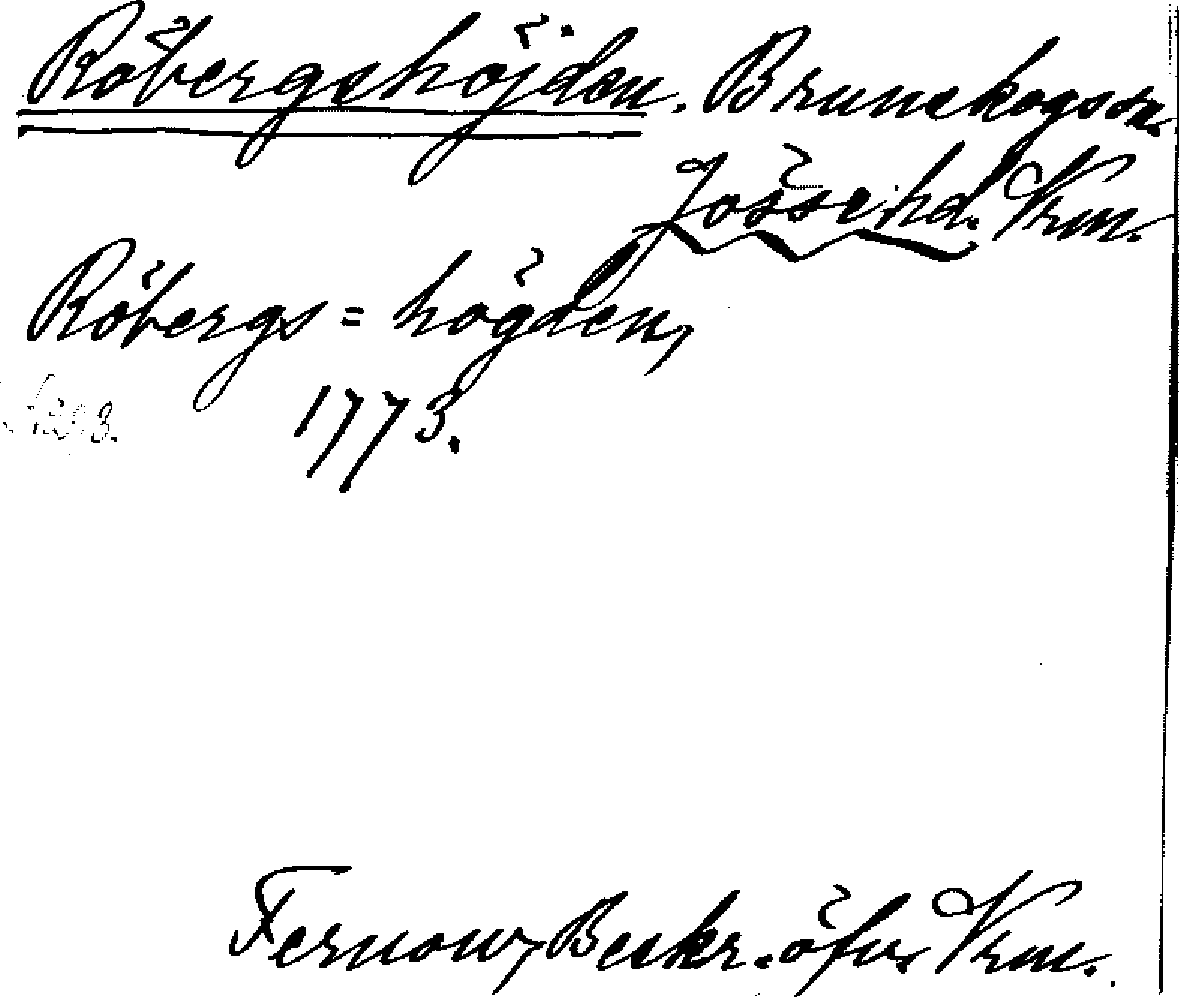 Röbergshöjden. Brunskogs sn.
Jösse hd. Vrm.
Röbergs = högden,
1773.
Fernow, Beskr. öfv. Vrm.